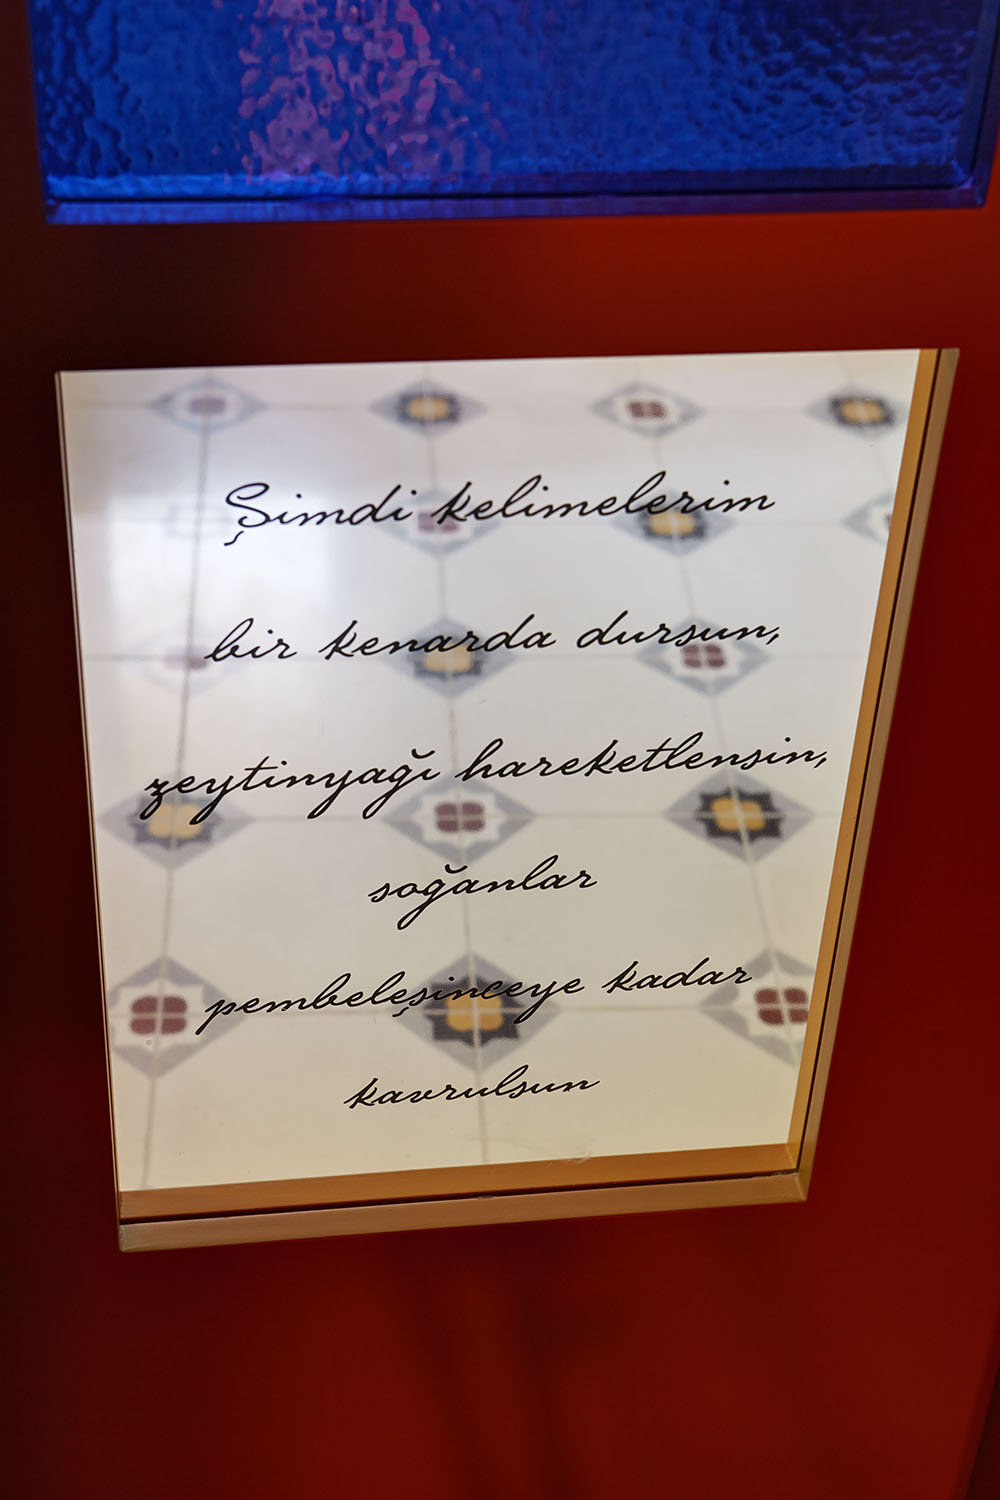 Şimdi kelimelerim
bir kenarda dursun,
zeytinyağı hareketlensin,
soğanlar
pembeleşinceye kadar
kavrulsun